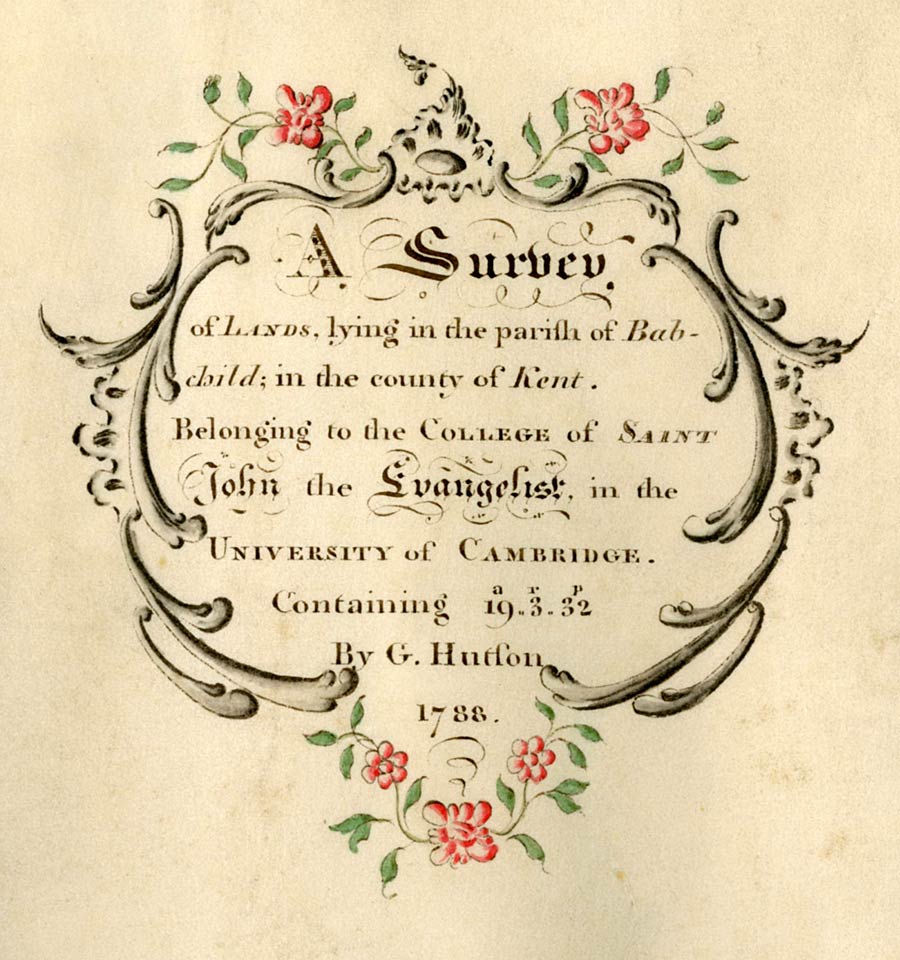 A Survey
of LANDS, lying in the pariſh of Bab-
child; in the county of Kent.
Belonging to the COLLEGE of SAINT
John the Evangelist, in the
UNIVERSITY of CAMBRIDGE.
Containing 19.. 3.. 32
a r p
By G. Hutſon
1788.